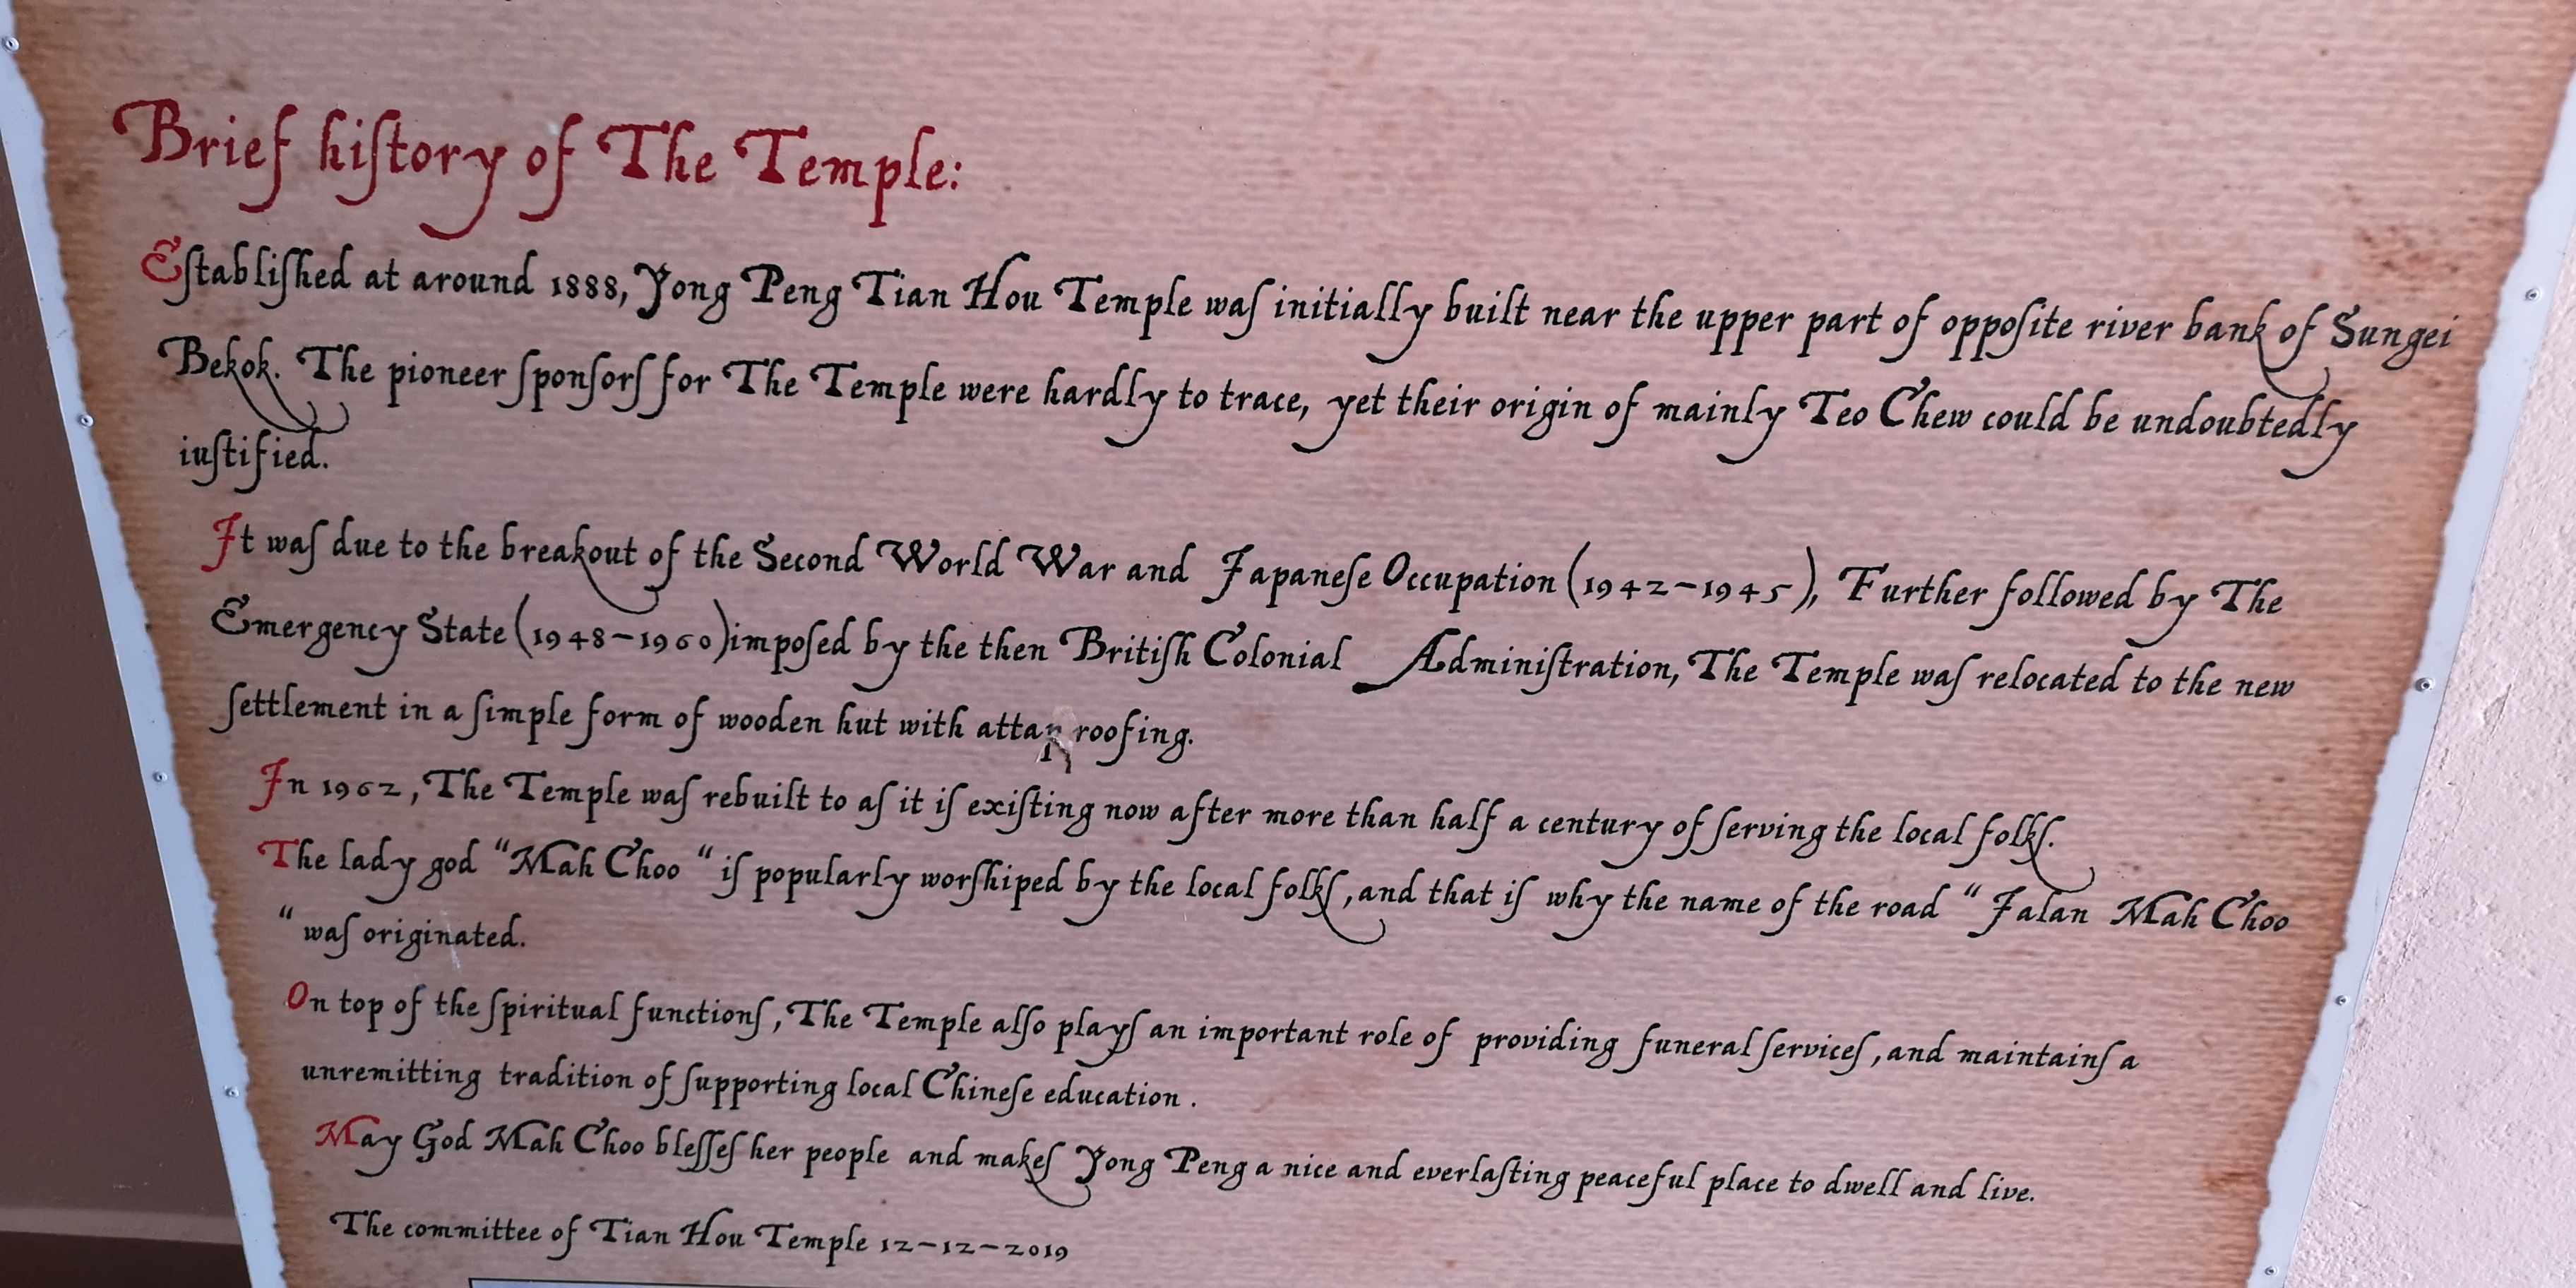 Brief history of The Temple:
Established at around 1888, Yong Peng Tian Hou Temple was initially built near the upper part of opposite river bank of Sungei
Bekok. The pioneer sponsors for The Temple were hardly to trace, yet their origin of mainly Teo Chew could be undoubtedly
iustified.
It was due to the breakout of the Second World War and Japanese Occupation (1942-1945), Further followed by The
Emergency State (1948-1960)imposed by the then British Colonial Administration, The Temple was relocated to the new
settlement in a simple form of wooden hut with attap roofing.
In 1962, The Temple was rebuilt to as it is existing now after more than half a century of serving the local folks.
The lady god "Mah Choo " is popularly worshiped by the local folks, and that is why the name of the road " Jalan Mah Choo
" was originated.
On top of the spiritual functions, The Temple also plays an important role of providing funeral services, and maintains a
unremitting tradition of supporting local Chinese education .
May God Mah Choo blesses her people and makes Yong Peng a nice and everlasting peaceful place to dwell and live.
The committee of Tian Hou Temple 12-12-2019